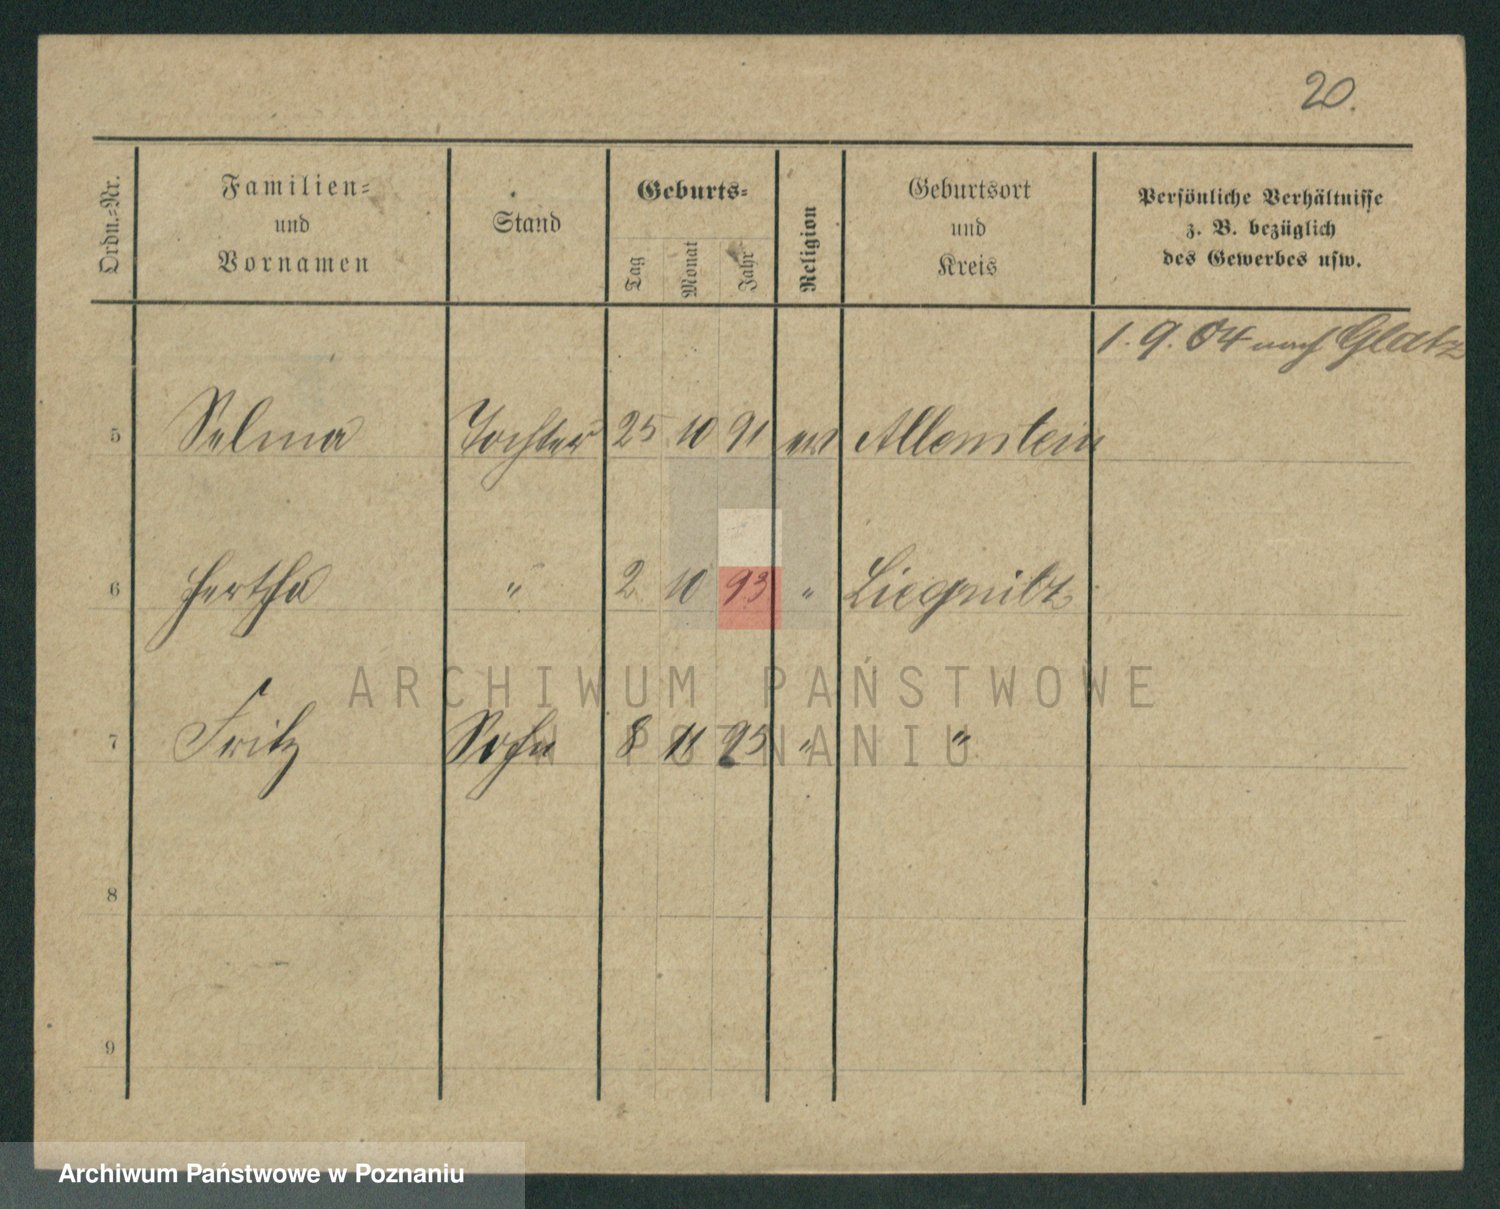 20.
Ordn.-Nr.
Familien-
und
Vornamen
Stand
Geburts-
Tag
Monat
Jahr
Religion
Geburtsort
und
Kreis
Persönliche Verhältnisse
z. B. bezüglich
des Gewerbes usw.
1.9.04 nach Glatz
5 Selma Tochter 25 10 91 ev Allenstein
6 Hertha " 2 10 93 " Liegnitz
ARCHIWUM PAŃSTWOWE
7 Fritz Sohn 8 11 95 " "
W POZNANIU
8
9
Archiwum Państwowe w Poznaniu